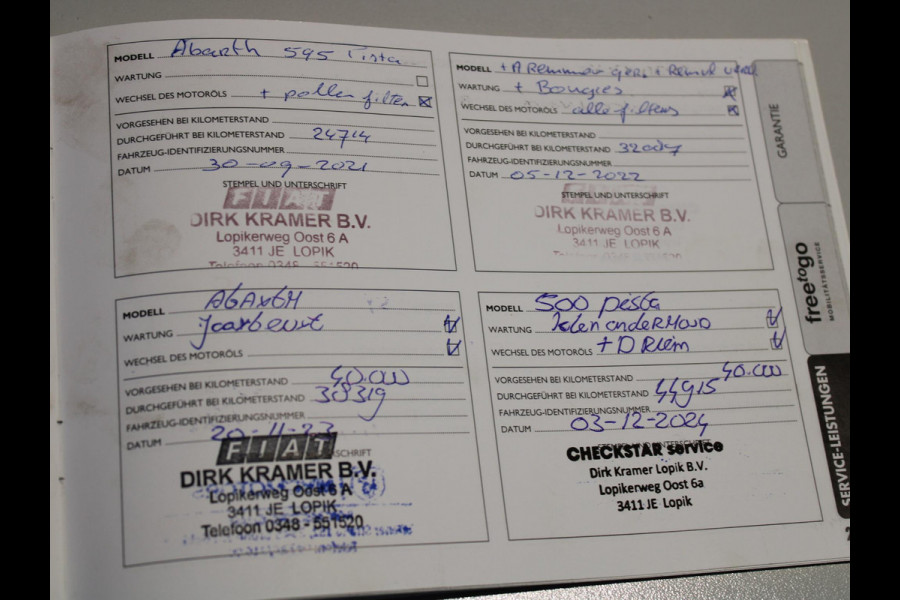 MODELL Abarth 595 Pista
WARTUNG
WECHSEL DES MOTORÖLS + pollen filter
VORGESEHEN BEI KILOMETERSTAND
DURCHGEFÜHRT BEI KILOMETERSTAND 24714
FAHRZEUG-IDENTIFIZIERUNGSNUMMER
DATUM 30-09-2021
STEMPEL UND UNTERSCHRIFT
FIAT
DIRK KRAMER B.V.
Lopikerweg Oost 6 A
3411 JE LOPIK
Telefoon 0348 - 551520
MODELL
WARTUNG + Bougies
WECHSEL DES MOTORÖLS alle filters
VORGESEHEN BEI KILOMETERSTAND
DURCHGEFÜHRT BEI KILOMETERSTAND
FAHRZEUG-IDENTIFIZIERUNGSNUMMER
DATUM 05-12-2022
STEMPEL UND UNTERSCHRIFT
FIAT
DIRK KRAMER B.V.
Lopikerweg Oost 6 A
3411 JE LOPIK
MODELL
WARTUNG
WECHSEL DES MOTORÖLS
VORGESEHEN BEI KILOMETERSTAND 40.000
DURCHGEFÜHRT BEI KILOMETERSTAND
FAHRZEUG-IDENTIFIZIERUNGSNUMMER
DATUM 20-11-23
FIAT
DIRK KRAMER B.V.
Lopikerweg Oost 6 A
3411 JE LOPIK
Telefoon 0348 - 551520
MODELL 500 pista
WARTUNG
WECHSEL DES MOTORÖLS + D Riem
VORGESEHEN BEI KILOMETERSTAND 40.000
DURCHGEFÜHRT BEI KILOMETERSTAND 44915
FAHRZEUG-IDENTIFIZIERUNGSNUMMER
DATUM 03-12-2024
CHECKSTAR service
Dirk Kramer Lopik B.V.
Lopikerweg Oost 6a
3411 JE Lopik
GARANTIE
freetogo
MOBILITÄTSSERVICE
SERVICE-LEISTUNGEN